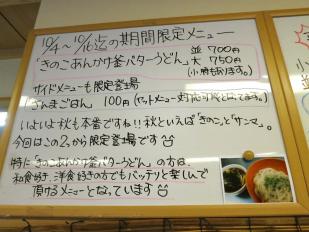 10/4〜10/16迄の期間限定メニュー
「きのこあんかけ釜バターうどん」 並 700円
大 750円
(小椀もあります。)
サイドメニューも限定登場
さんまごはん 100円 (セットメニュー対応可能となってます。)
いよいよ秋も本番ですね!!秋といえば「きのこ」と「サンマ」。
今回はこの2つから限定登場です
特に「きのこあんかけ釜バターうどん」の方は、
和食好き、洋食好きの方でもバッチリと楽しんで
頂けるメニューとなっています